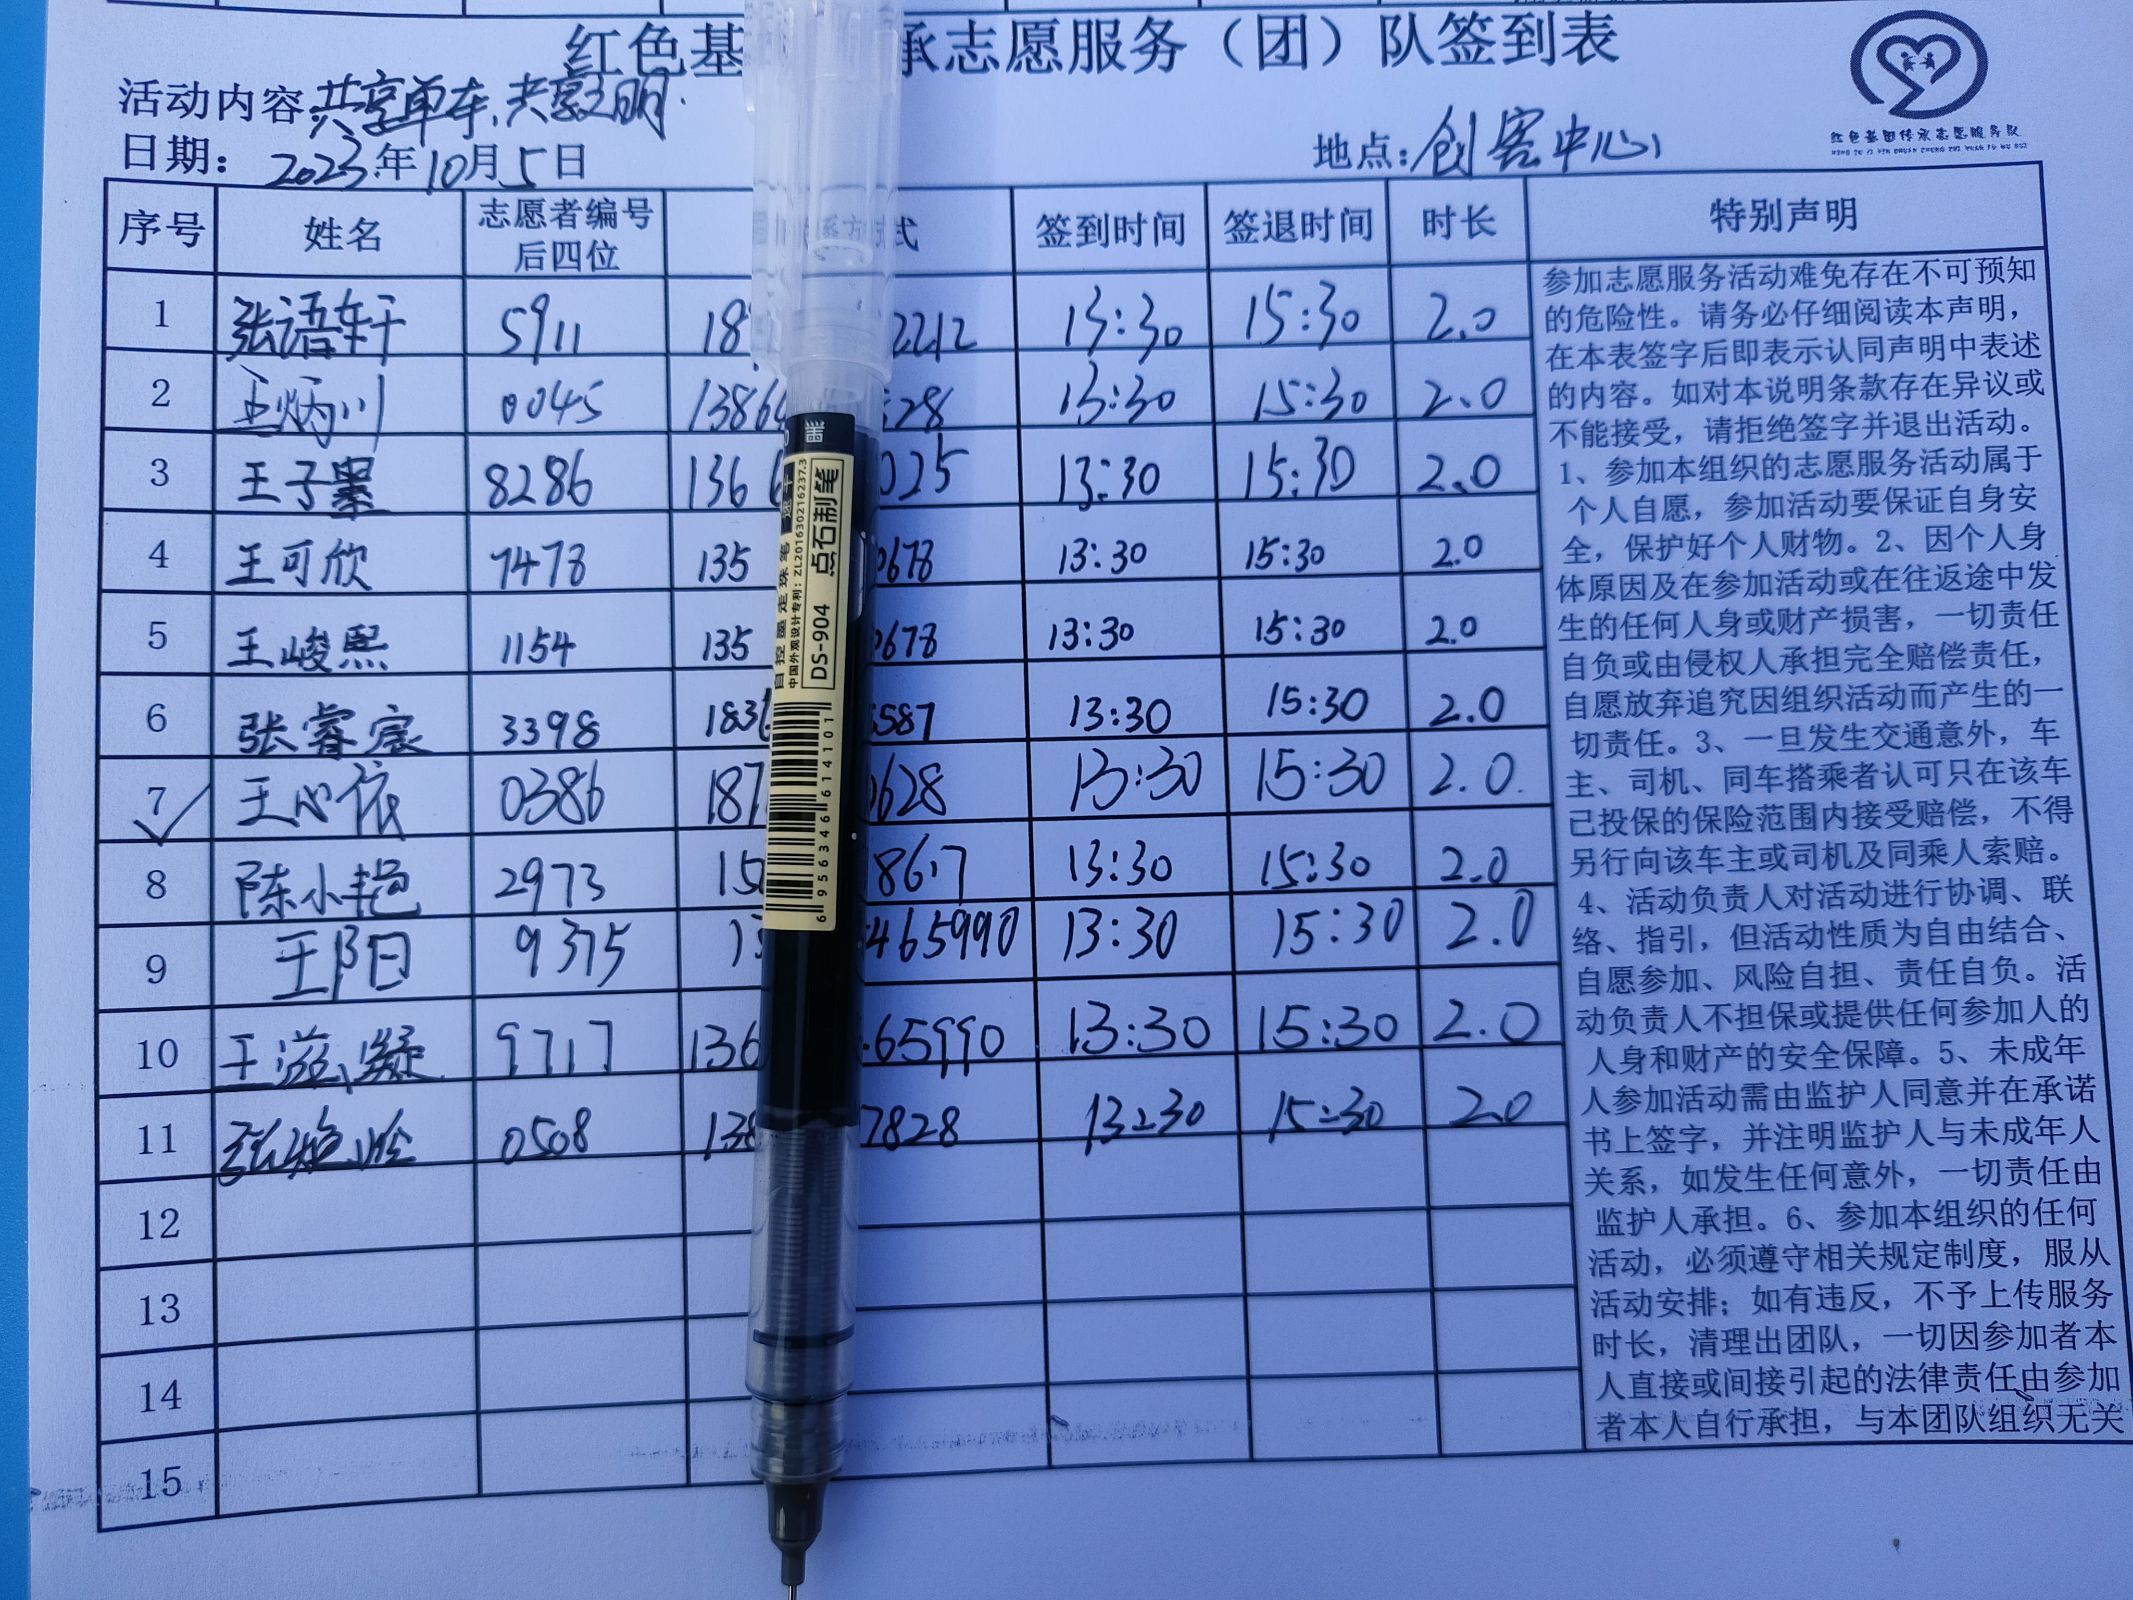 红色基 承志愿服务（团）队签到表
活动内容:共享单车、共享文明.
日期：2023年10月5日 地点:创客中心
红色基因传承志愿服务队
序号 姓名 志愿者编号后四位 系方式 签到时间 签退时间 时长 特别声明
1 张语轩 5911 18 2212 13:30 15:30 2.0
2 王炳川 0045 1386 28 13:30 15:30 2.0
3 王子墨 8286 136 025 13:30 15:30 2.0
4 王可欣 7478 135 0678 13:30 15:30 2.0
5 王峻熙 1154 135 0678 13:30 15:30 2.0
6 张睿宸 3398 183 587 13:30 15:30 2.0
7 王心依 0386 187 0628 13:30 15:30 2.0
8 陈小艳 2973 15 8617 13:30 15:30 2.0
9 王阳 9375 13 465990 13:30 15:30 2.0
10 王滋凝 9717 136 65990 13:30 15:30 2.0
11 张 0508 138 7828 13:30 15:30 2.0
12
13
14
15
参加志愿服务活动难免存在不可预知
的危险性。请务必仔细阅读本声明，
在本表签字后即表示认同声明中表述
的内容。如对本说明条款存在异议或
不能接受，请拒绝签字并退出活动。
1、参加本组织的志愿服务活动属于
个人自愿，参加活动要保证自身安
全，保护好个人财物。2、因个人身
体原因及在参加活动或在往返途中发
生的任何人身或财产损害，一切责任
自负或由侵权人承担完全赔偿责任，
自愿放弃追究因组织活动而产生的一
切责任。3、一旦发生交通意外，车
主、司机、同车搭乘者认可只在该车
已投保的保险范围内接受赔偿，不得
另行向该车主或司机及同乘人索赔。
4、活动负责人对活动进行协调、联
络、指引，但活动性质为自由结合、
自愿参加、风险自担、责任自负。活
动负责人不担保或提供任何参加人的
人身和财产的安全保障。5、未成年
人参加活动需由监护人同意并在承诺
书上签字，并注明监护人与未成年人
关系，如发生任何意外，一切责任由
监护人承担。6、参加本组织的任何
活动，必须遵守相关规定制度，服从
活动安排；如有违反，不予上传服务
时长，清理出团队，一切因参加者本
人直接或间接引起的法律责任由参加
者本人自行承担，与本团队组织无关
点石制笔
DS-904
自控墨走珠笔
中国外观设计专利：ZL201630216237.3
6956346614101